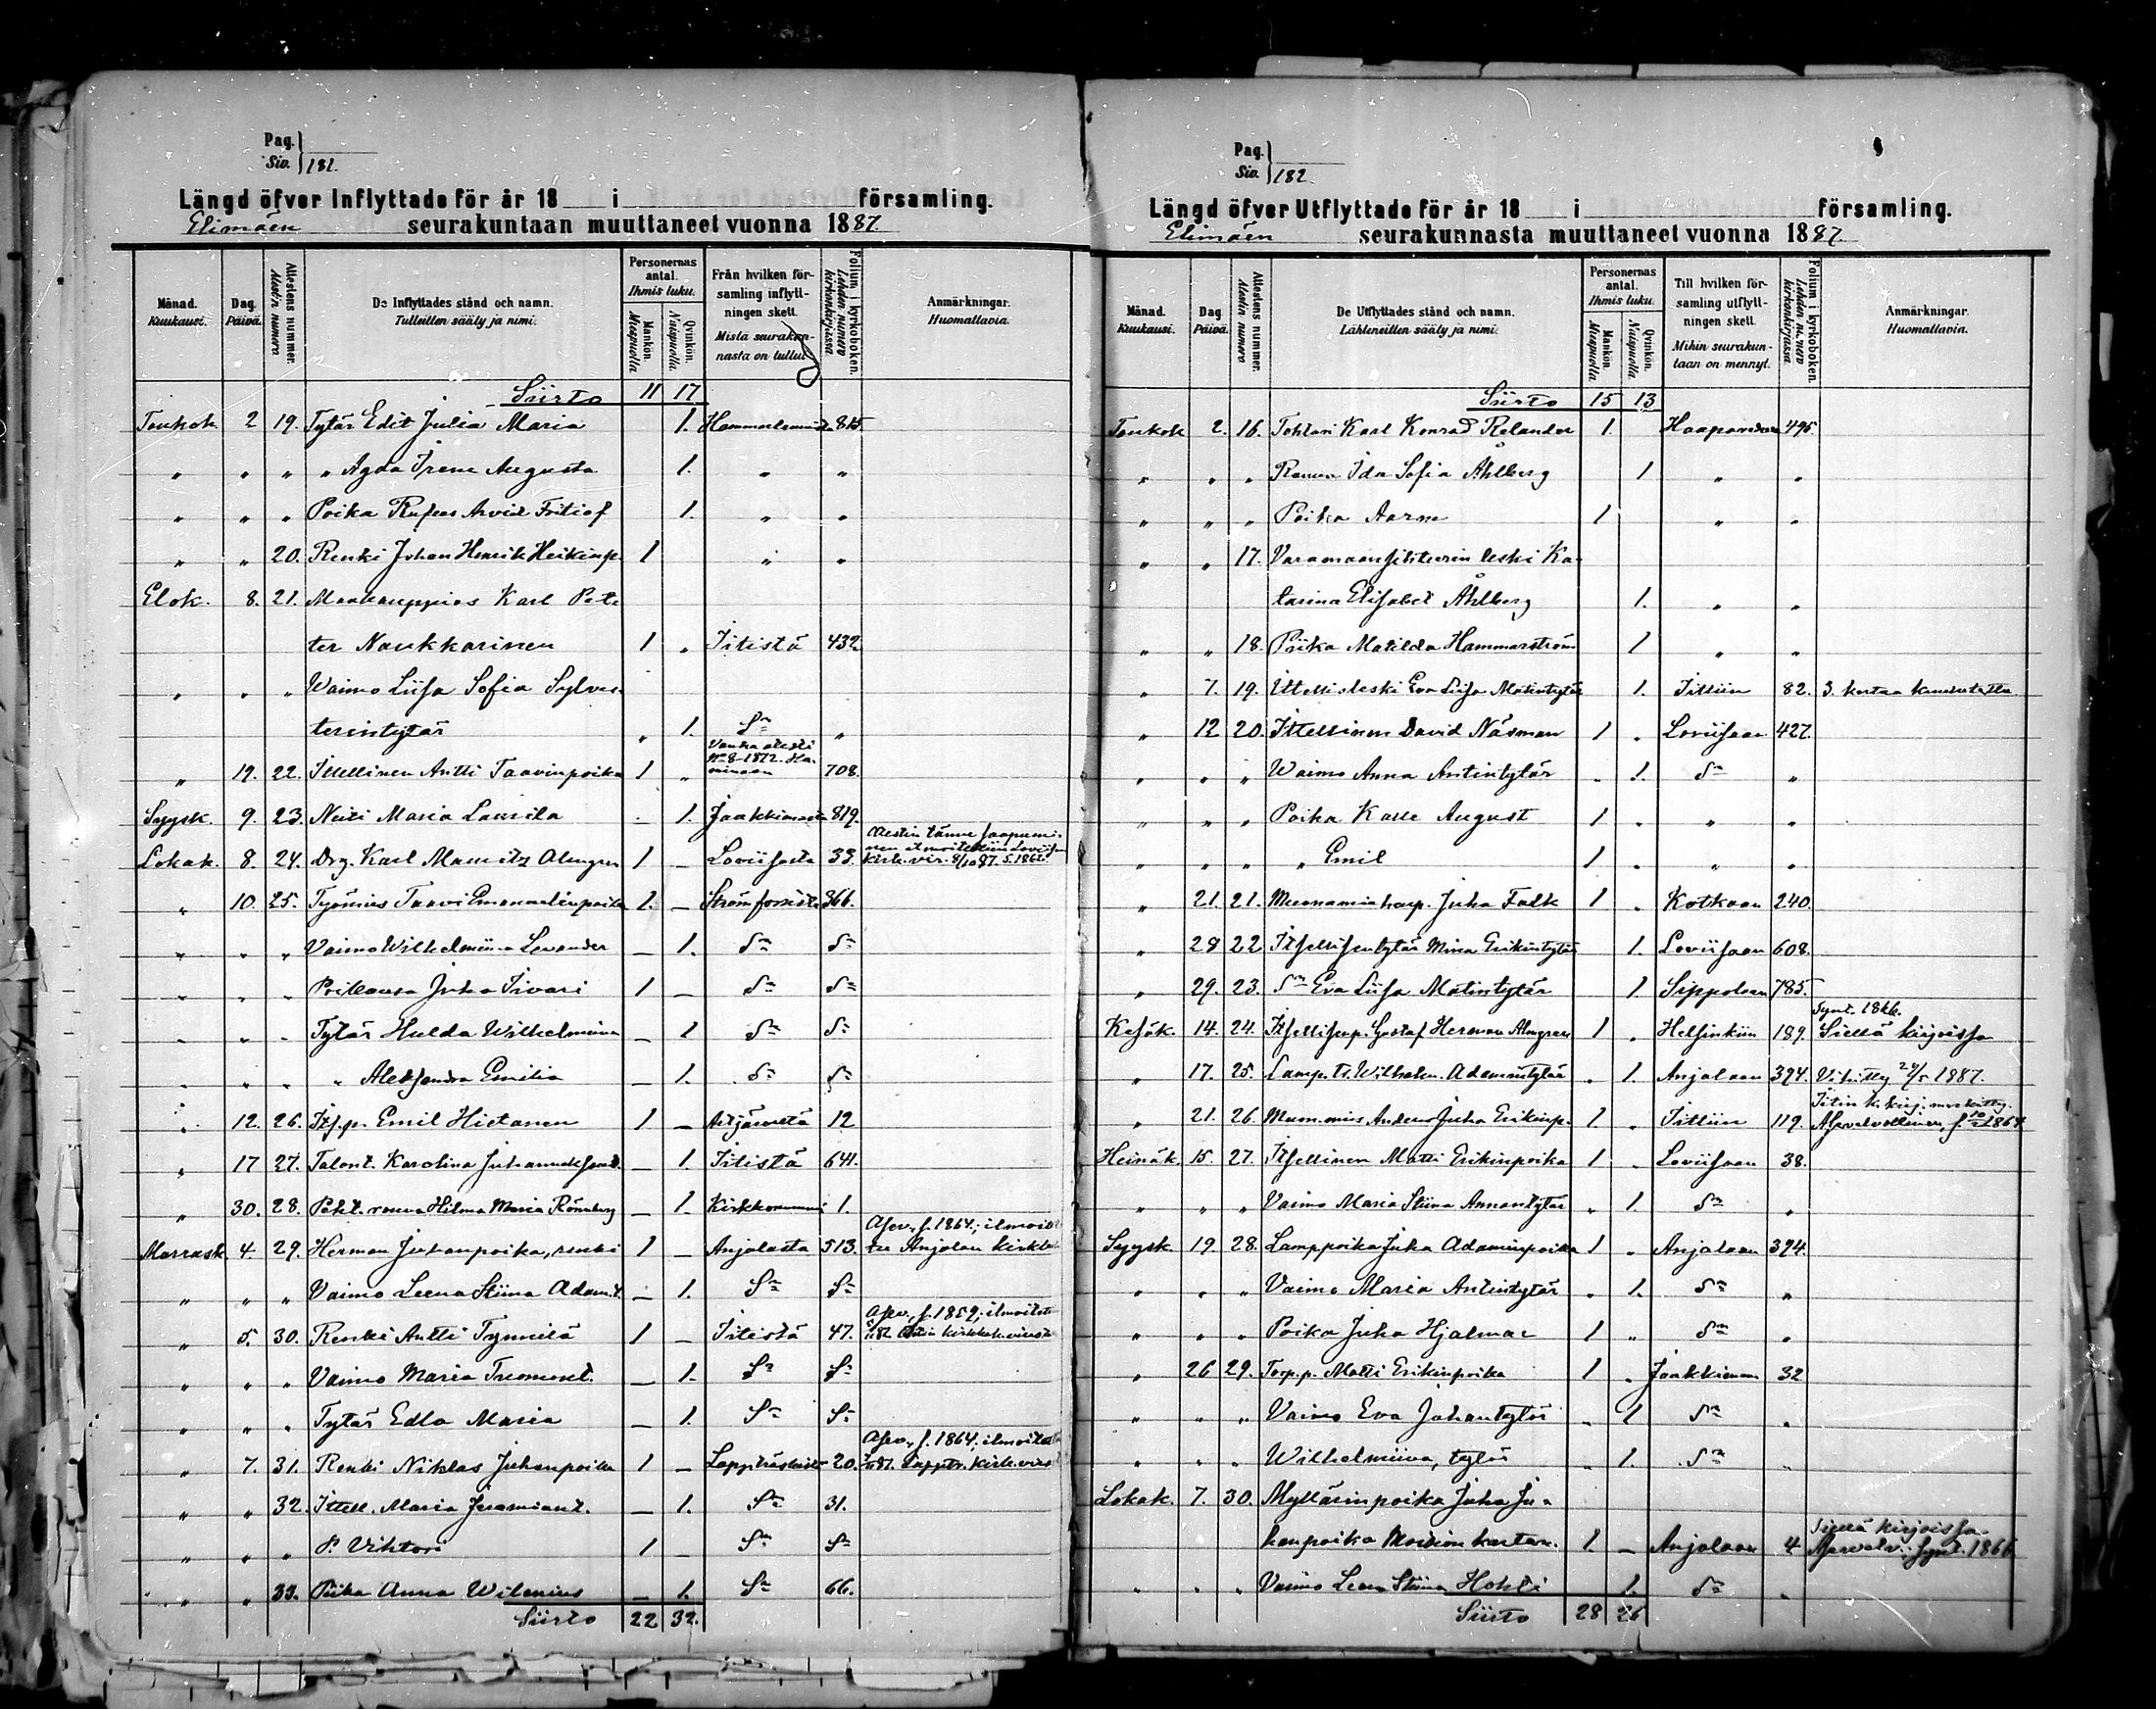 Pag.
Siv. 181.
Längd öfver Inflyttade för år 18 i församling.
Elimäen seurakuntaan muuttaneet vuonna 1887.
Månad. Kuukausi.
Dag. Päivä.
Attestens nummer. Alestin numero
De Inflyttades stånd och namn. Tulleitten sääty ja nimi.
Personernas antal. Ihmis luku.
Mankön. Miespuolia
Qvinkön. Naispuolia
Från hvilken församling inflyttningen skett. Mistä seurakunnasta on tullut
Folium i kyrkoboken. Lehden numero kirkonkirjassa
Anmärkningar. Huomattavia.
Siirto 11 17
Toukok. 2 19. Tytär Edit Julia Maria 1. 815
" " " " Agda Irene Augusta 1. " "
" " " Poika Rufus Arvid Fritiof 1. " "
" " 20. Renki Johan Henrik Heikinp. 1 " "
Elok. 8. 21. Maakauppias Karl Pete
ter Naukkarinen 1 " Iitistä 432
" " " Waimo Liisa Sofia Sylves-
terintytär " 1. Sn "
" 19. 22. Ittellinen Antti Taavinpoika 1 " 708.
Syysk. 9. 23. Neiti Maria Laurila - 1. 819.
Lokak. 8. 24. Karl Almgren 1 - Loviisasta 33.
" 10. 25. Työmies Taavi Emanuelinpoika 1. - 366.
" " " Vaimo Wilhelmiina Levander - 1. Sn Sn
" " " Poikansa Juho Iivari 1 - Sn Sn
" " " Tytär Hulda Wilhelmiina - 1 Sn Sn
" " " " Aleksandra Emilia - 1. Sn Sn
" 12. 26. Itf.p. Emil Hietanen 1 - Artjärveltä 12
" 17 27. Talont. Karolina - 1. Iitistä 641.
" 30. 28. rouva Hilma Maria Rönnberg - 1. Kirkkonummi 1.
Marrask. 4. 29. Herman Juhanpoika, renki 1 - Anjalasta 513. f. 1864; Anjalan
" " " Vaimo Leena Stiina Adamt. - 1. Sn Sn
" 5. 30. Renki Antti Tynnilä 1 - Iitistä 47. f. 1859;
" " " Vaimo Maria - 1. Sn Sn
" " " Tytär Edla Maria - 1. Sn Sn
" 7. 31. Renki Niklas Juhanpoika 1 - 20. f. 1864;
" " 32. Ittell. Maria Jeremiant. - 1. Sn 31.
" " " P. Vihtori 1 - Sn Sn
" " 33. Piika Anna Wilenius - 1. Sn 66.
Siirto 22 32.
Pag.
Siv. 182.
Längd öfver Utflyttade för år 18 i församling.
Elimäen seurakunnasta muuttaneet vuonna 1887.
Månad. Kuukausi.
Dag Päivä.
Attestens nummer. Alestin numero
De Utflyttades stånd och namn. Lähteneitten sääty ja nimi.
Personernas antal. Ihmis luku.
Mankön. Miespuolia
Qvinkön. Naispuolia
Till hvilken församling utflyttningen skett. Mihin seurakuntaan on mennyt.
Folium i kyrkoboken. Lehden numero kirkonkirjassa
Anmärkningar. Huomattavia.
Siirto 15 13
Toukok 2. 16. Tohtori Karl Konrad Relander 1. 495.
" " " Rouva Ida Sofia Åhlberg 1 " "
" " " Poika Aarne 1 " "
" " 17. leski Ka-
tarina Elisabet Åhlberg 1. " "
" " 18. Piika Matilda Hammarström 1 " "
" 7. 19. Ittellisleski Eva Liisa Matintytär 1. Iittiin 82. 3. kertaa kuulutettu
" 12 20. Ittellinen David Näsman 1 " Loviisaan 427.
" " " Waimo Anna Antintytär " 1. Sn "
" " " Poika Kalle August 1 " " "
" " " " Emil 1 " " "
" 21. 21. Juho Falk 1 " Kotkaan 240.
" 28 22 Itsellisentytär Miina Erikintytär 1. Loviisaan 608.
" 29. 23. Sn Eva Liisa Matintytär 1 Sippolaan 785.
Kesäk. 14. 24. Gustaf Herman Almgren 1 " Helsinkiin 189. Synt. 1866. Siellä kirjoissa
" 17. 25. Lamp. tr. Wilhelm. Adamintytär " 1. Anjalaan 394. Vihitty 29/5 1887.
" 21. 26. Juho Erikinp. 1. " Iittiin 119.
Heinäk. 15. 27. Itsellinen Matti Erikinpoika 1 " Loviisaan 38.
" " " Vaimo Maria Stiina Annantytär " 1. Sn "
Syysk. 19. 28. Lamppoika Juha Adaminpoika 1 " Anjalaan 394.
" " " Vaimo Maria Antintytär " 1. Sn "
" " " Poika Juho Hjalmar 1 " Sn "
" 26 29. Torp.p. Matti Erikinpoika 1 " 32
" " " Vaimo Eva Johantytär " 1 Sn "
" " " Wilhelmiina, tytär " 1. Sn "
Lokak. 7. 30. Myllärinpoika Juho Ju-
hanpoika 1. - Anjalaan 4 Siellä kirjoissa. Synt. 1866
" " " Vaimo Leena Stiina Hohti 1. Sn "
Siirto 28 26